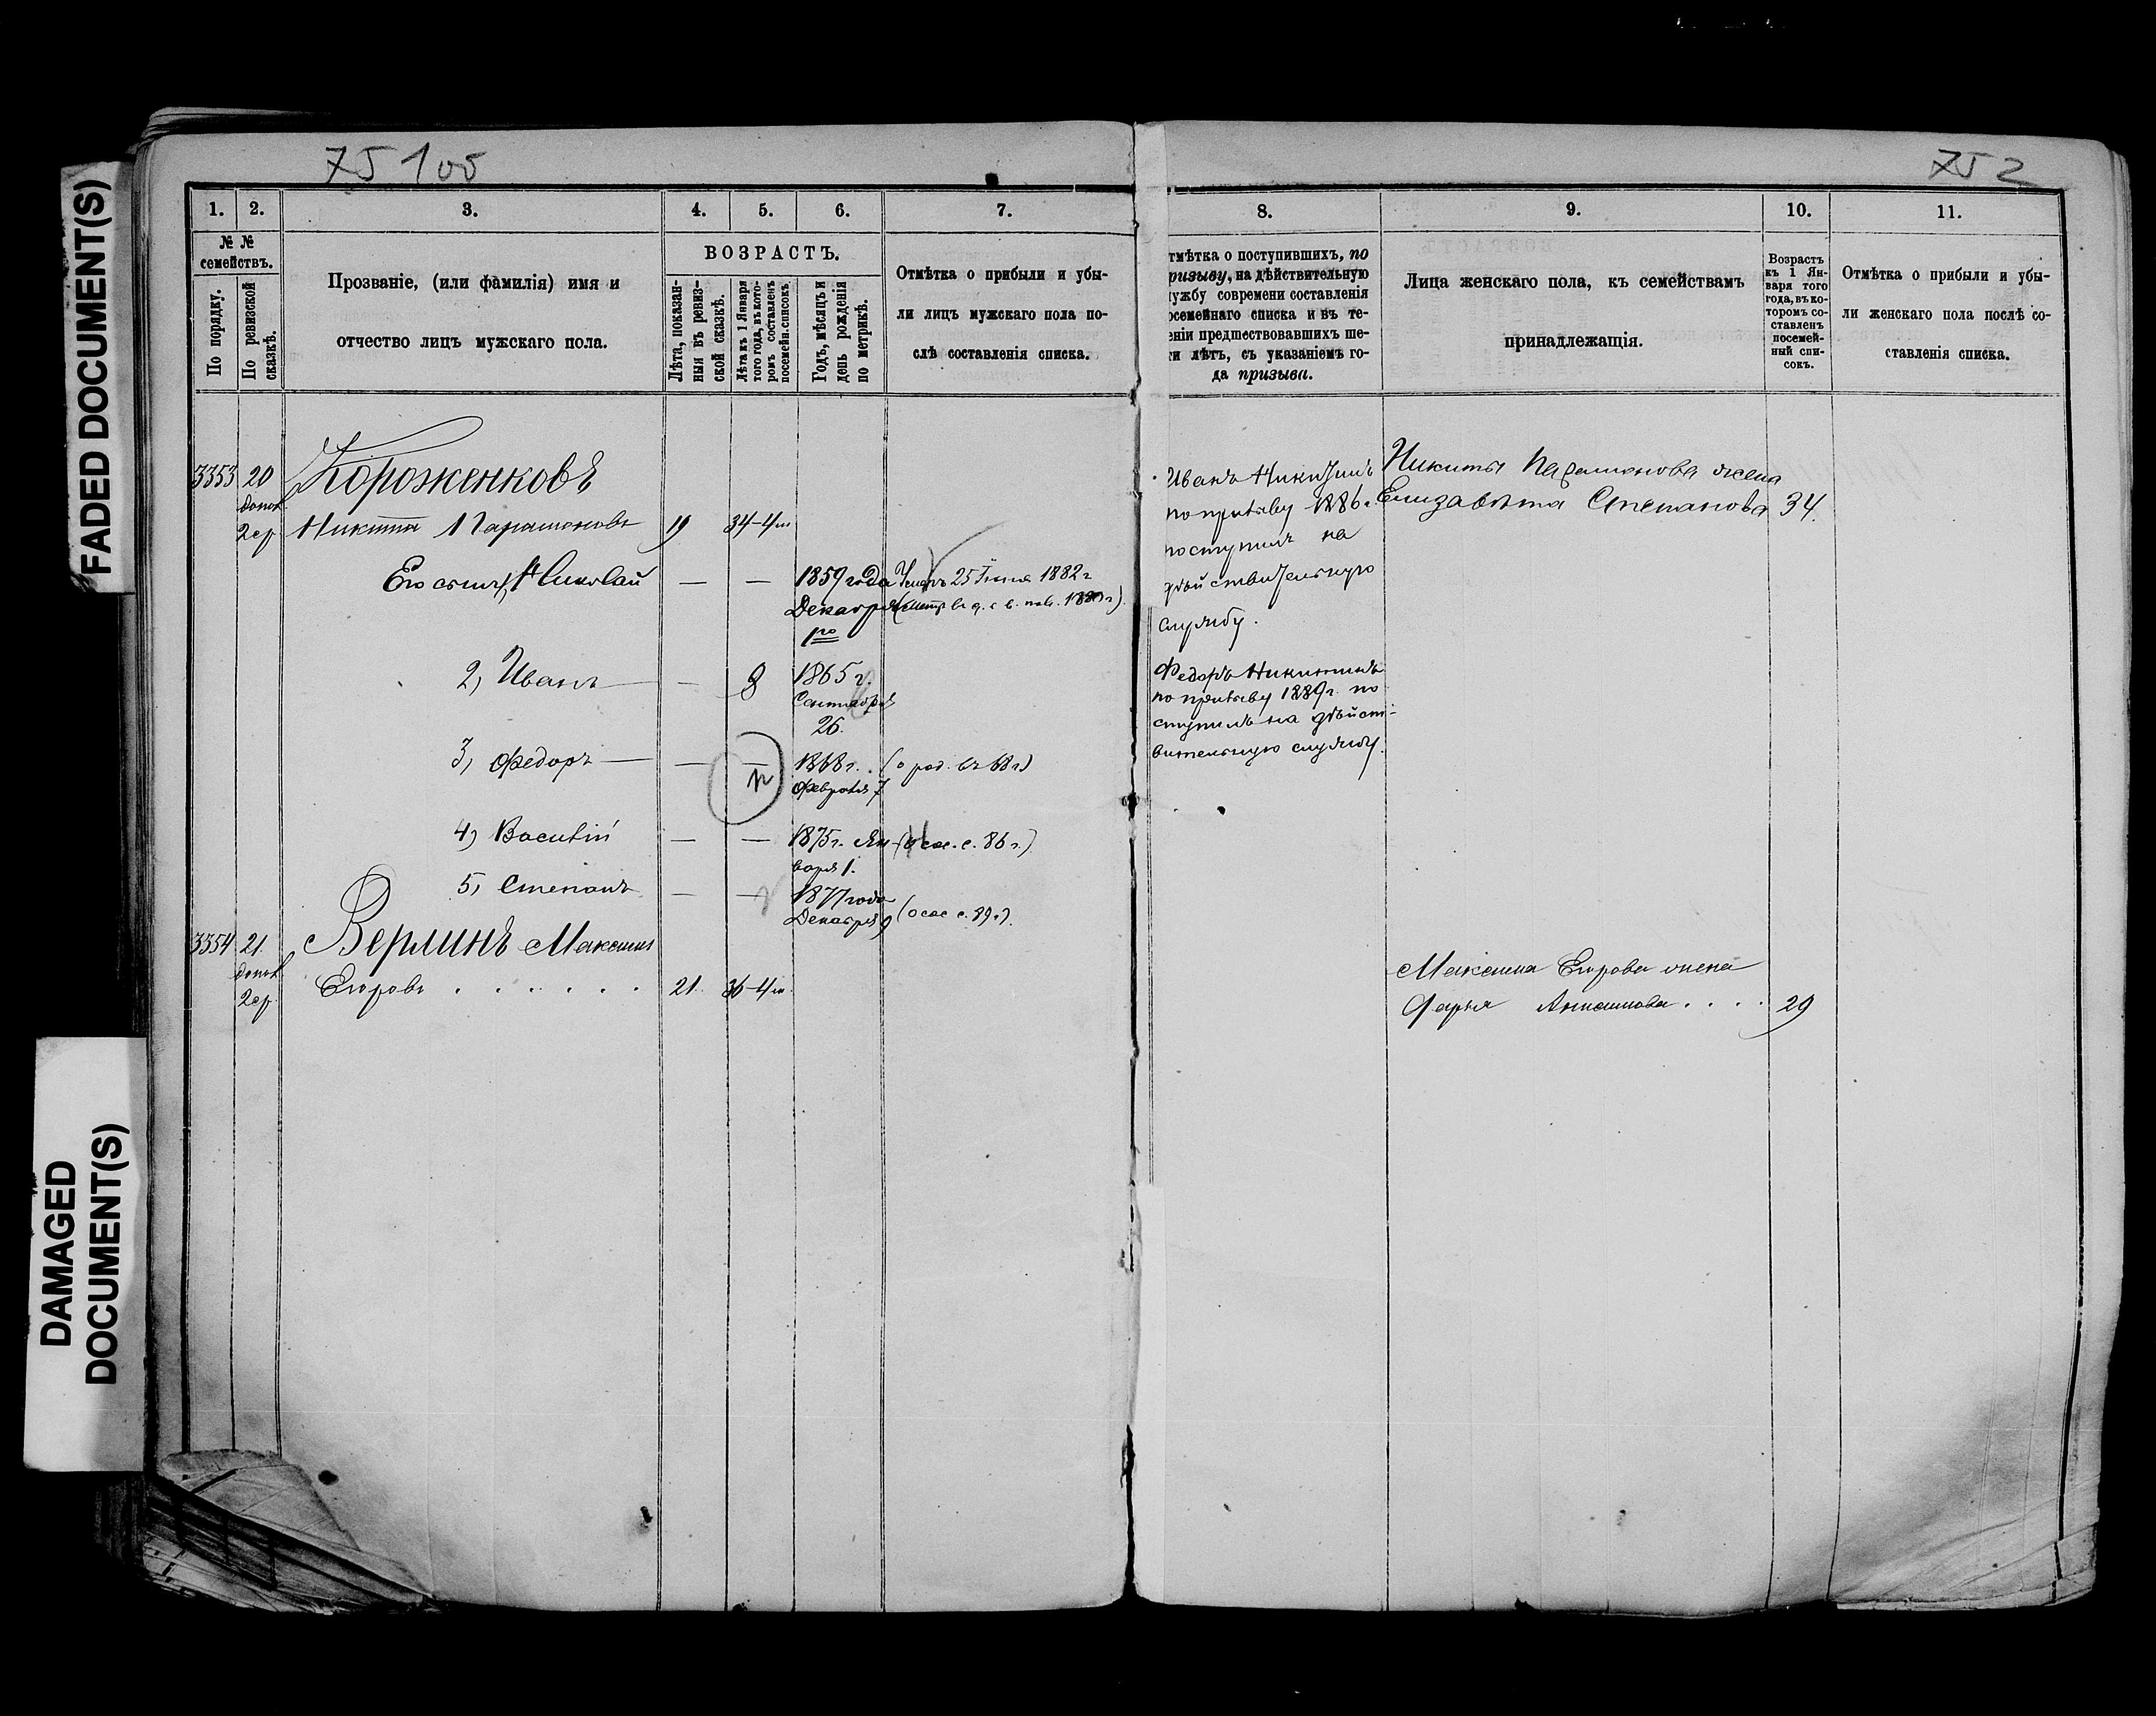 FADED DOCUMENT(S)
DAMAGED
DOCUMENT(S)
75 100
752
1. 2. 3. 4. 5. 6. 7.
№ №
семействъ.
По порядку.
По ревизской
сказкѣ.
Прозваніе, (или фамилія) имя и
отчество лицъ мужскаго пола.
ВОЗРАСТЪ.
Лѣта, показан-
ныя въ ревиз-
ской сказкѣ.
Лѣта къ 1 Января
того года, въ кото-
ромъ составленъ
посемейн. списокъ
Годъ, мѣсяцъ и
день рожденія
по метрикѣ.
Отмѣтка о прибыли и убы-
ли лицъ мужскаго пола по-
слѣ составленія списка.
3353 20
допол
2 ср
Короженковъ
Никита Парамоновъ 19 34-4м
Его сынъ 1, Николай — — 1859 года
Декабря
1го
Умеръ 25 Іюня 1882 г
2, Иванъ — 8 1865 г.
Сентября
26.
3, Федоръ — — — 1868 г.
Февраля 7
(о род. въ 68 г.)
4, Василій — — 1875 г. Ян-
варя 1.
с. 86 г.)
5, Степанъ — — 1877 года
Декабря 9
с. 89 г.).
3354 21.
допол
2 ср
Верлинъ Максимъ
Егоровъ . . . . . . 21. 36-4м.
8. 9. 10. 11.
тмѣтка о поступившихъ, по
ризыву, на дѣйствительную
ужбу современи составленія
осемейнаго списка и въ те-
еніи предшествовавшихъ ше-
и лѣтъ, съ указаніемъ го-
да призыва.
Лица женскаго пола, къ семействамъ
принадлежащія.
Возрастъ
къ 1 Ян-
варя того
года, въ ко-
торомъ со-
ставленъ
посемей-
ный спи-
сокъ.
Отмѣтка о прибыли и убы-
ли женскаго пола послѣ со-
ставленія списка.
Иванъ Никитинъ
по призыву 1886 г.
поступилъ на
дѣйствительную
службу.
Федоръ Никитинъ
по призыву 1889 г. по
ступилъ на дѣйст-
вительную службу.
Никиты Парамонова жена
Елизавѣта Степанова 34.
Максима Егорова жена
Дарья Анисимова . . . . 29